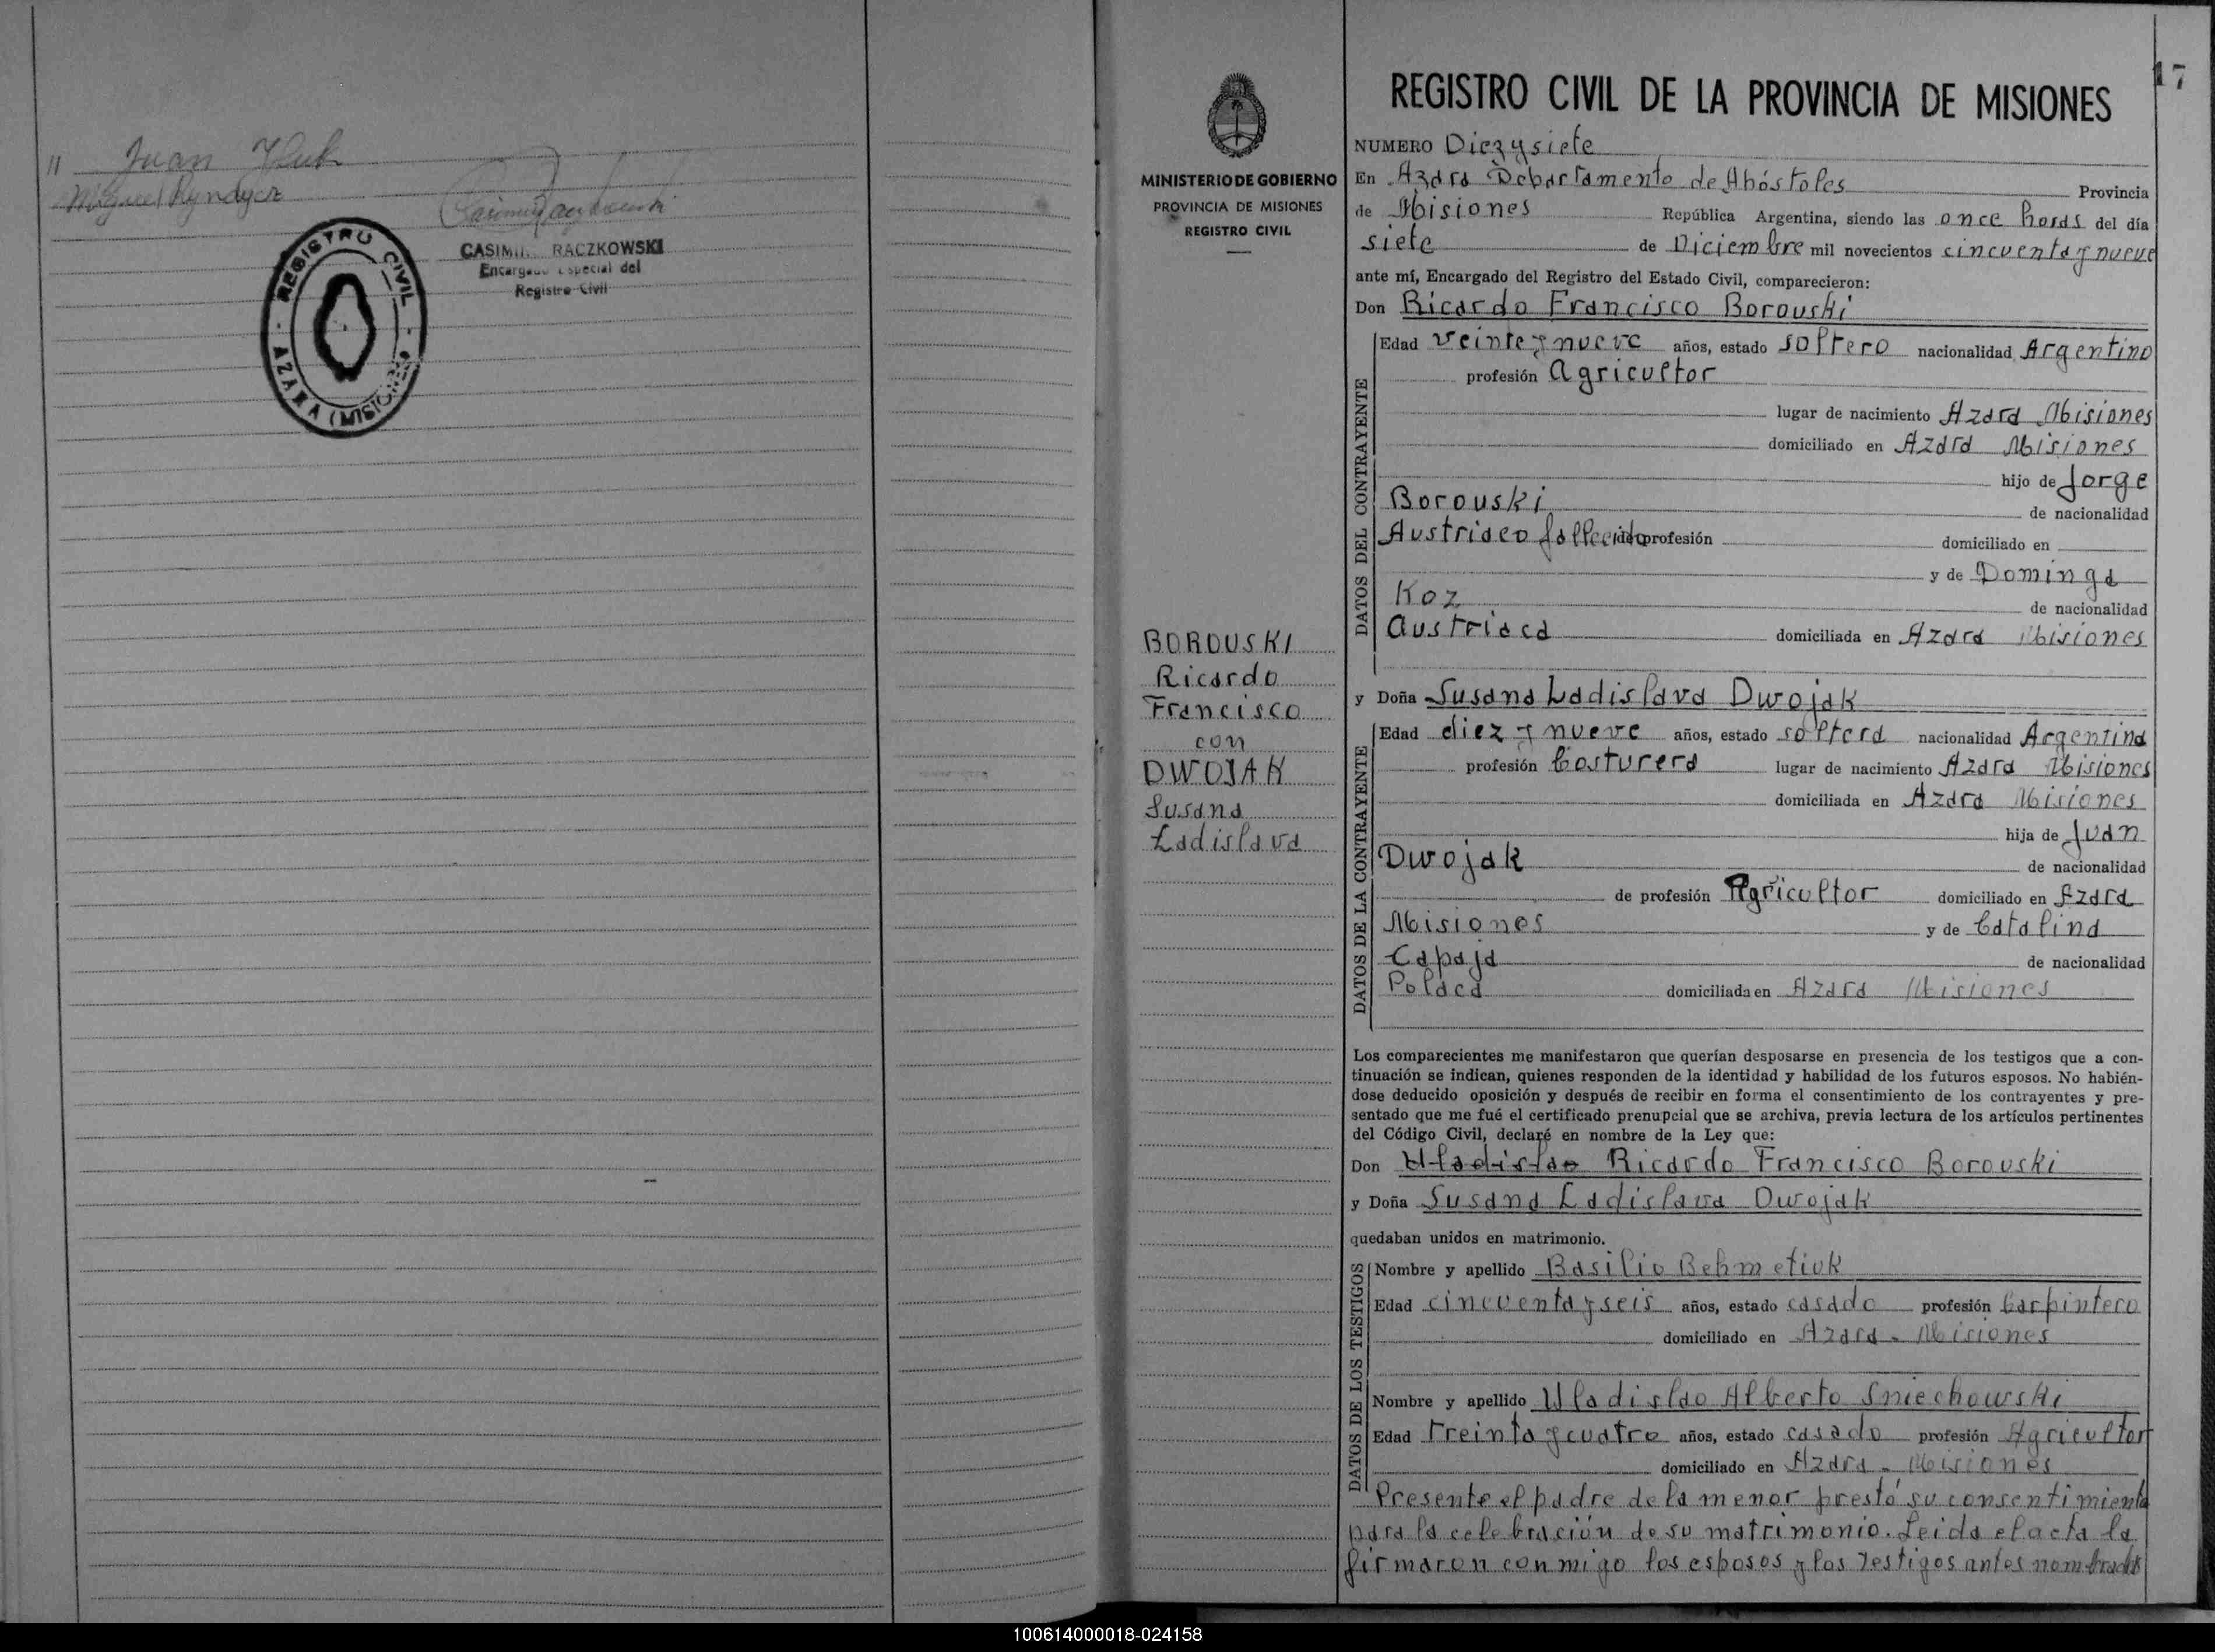 Juan
Miguel Ryndycz
CASIMIR RACZKOWSKI
Encargado Especial del
Registro Civil
REGISTRO CIVIL
AZARA (MISIONES)
17
MINISTERIO DE GOBIERNO
PROVINCIA DE MISIONES
REGISTRO CIVIL
BOROUSKI
Ricardo
Francisco
con
DWOJAK
Susana
Ladislava
REGISTRO CIVIL DE LA PROVINCIA DE MISIONES
NUMERO Diezysiete
En Azara Departamento de Apóstoles Provincia
de Misiones República Argentina, siendo las once horas del día
siete de Diciembre mil novecientos cincuenta y nueve
ante mí, Encargado del Registro del Estado Civil, comparecieron:
Don Ricardo Francisco Borouski
DATOS DEL CONTRAYENTE
Edad veinte y nueve años, estado soltero nacionalidad Argentino
profesión Agricultor
lugar de nacimiento Azara Misiones
domiciliado en Azara Misiones
hijo de Jorge
Borouski de nacionalidad
Austriaco fallecido profesión domiciliado en
y de Dominga
Koz de nacionalidad
Austriaca domiciliada en Azara Misiones
y Doña Susana Ladislava Dwojak
DATOS DE LA CONTRAYENTE
Edad diez y nueve años, estado soltera nacionalidad Argentina
profesión Costurera lugar de nacimiento Azara Misiones
domiciliada en Azara Misiones
hija de Juan
Dwojak de nacionalidad
de profesión Agricultor domiciliado en Azara
Misiones y de Catalina
Capaja de nacionalidad
Polaca domiciliada en Azara Misiones
Los comparecientes me manifestaron que querían desposarse en presencia de los testigos que a con-
tinuación se indican, quienes responden de la identidad y habilidad de los futuros esposos. No habién-
dose deducido oposición y después de recibir en forma el consentimiento de los contrayentes y pre-
sentado que me fué el certificado prenupcial que se archiva, previa lectura de los artículos pertinentes
del Código Civil, declaré en nombre de la Ley que:
Don Uladislao Ricardo Francisco Borouski
y Doña Susana Ladislava Dwojak
quedaban unidos en matrimonio.
DATOS DE LOS TESTIGOS
Nombre y apellido Basilio Behmetiuk
Edad cincuenta y seis años, estado casado profesión Carpintero
domiciliado en Azara - Misiones
Nombre y apellido Uladislao Alberto Sniechowski
Edad treinta y cuatro años, estado casado profesión Agricultor
domiciliado en Azara - Misiones
Presente el padre de la menor prestó su consentimiento
para la celebración de su matrimonio. Leida el acta la
firmaron conmigo los esposos y los testigos antes nombrados
100614000018-024158